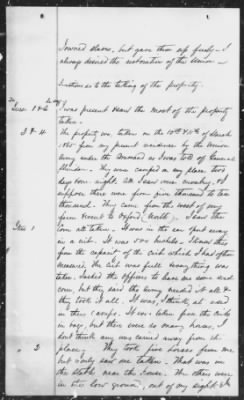 I owned slaves, but gave them up freely. I
always desired the restoration of the Union.
Questions as to the taking of the property.
Ques 1 & 2 I was present & saw the most of the property
taken.
3 & 4 The property was taken on the 10th & 11th of March
1865 from my present residence by the Union
Army under the command as I was told of General
Sheridan. They were camped on my place two
days & one night. I saw some cavalry. I
suppose there were from five thousand to ten
thousand. They came from the west of my
farm & went to Oxford, North. I saw the
Item 1 Corn all taken. It was in the ear put away
in a crib. It was 500 bushels. I know this
from the capacity of the crib which I had often
measured. The crib was full & every thing was
taken. I asked the officers to leave me some seed
corn, but they said the army needed it all &
they took it all. It was, I think, all used
in their camps. It was taken from the cribs
in bags, but there were so many horses, I
don't think any was carried away from the
2 place. They took five horses from me
but I only saw one taken. That was in
the stable near the house. The others were
in the low ground, out of my sight &